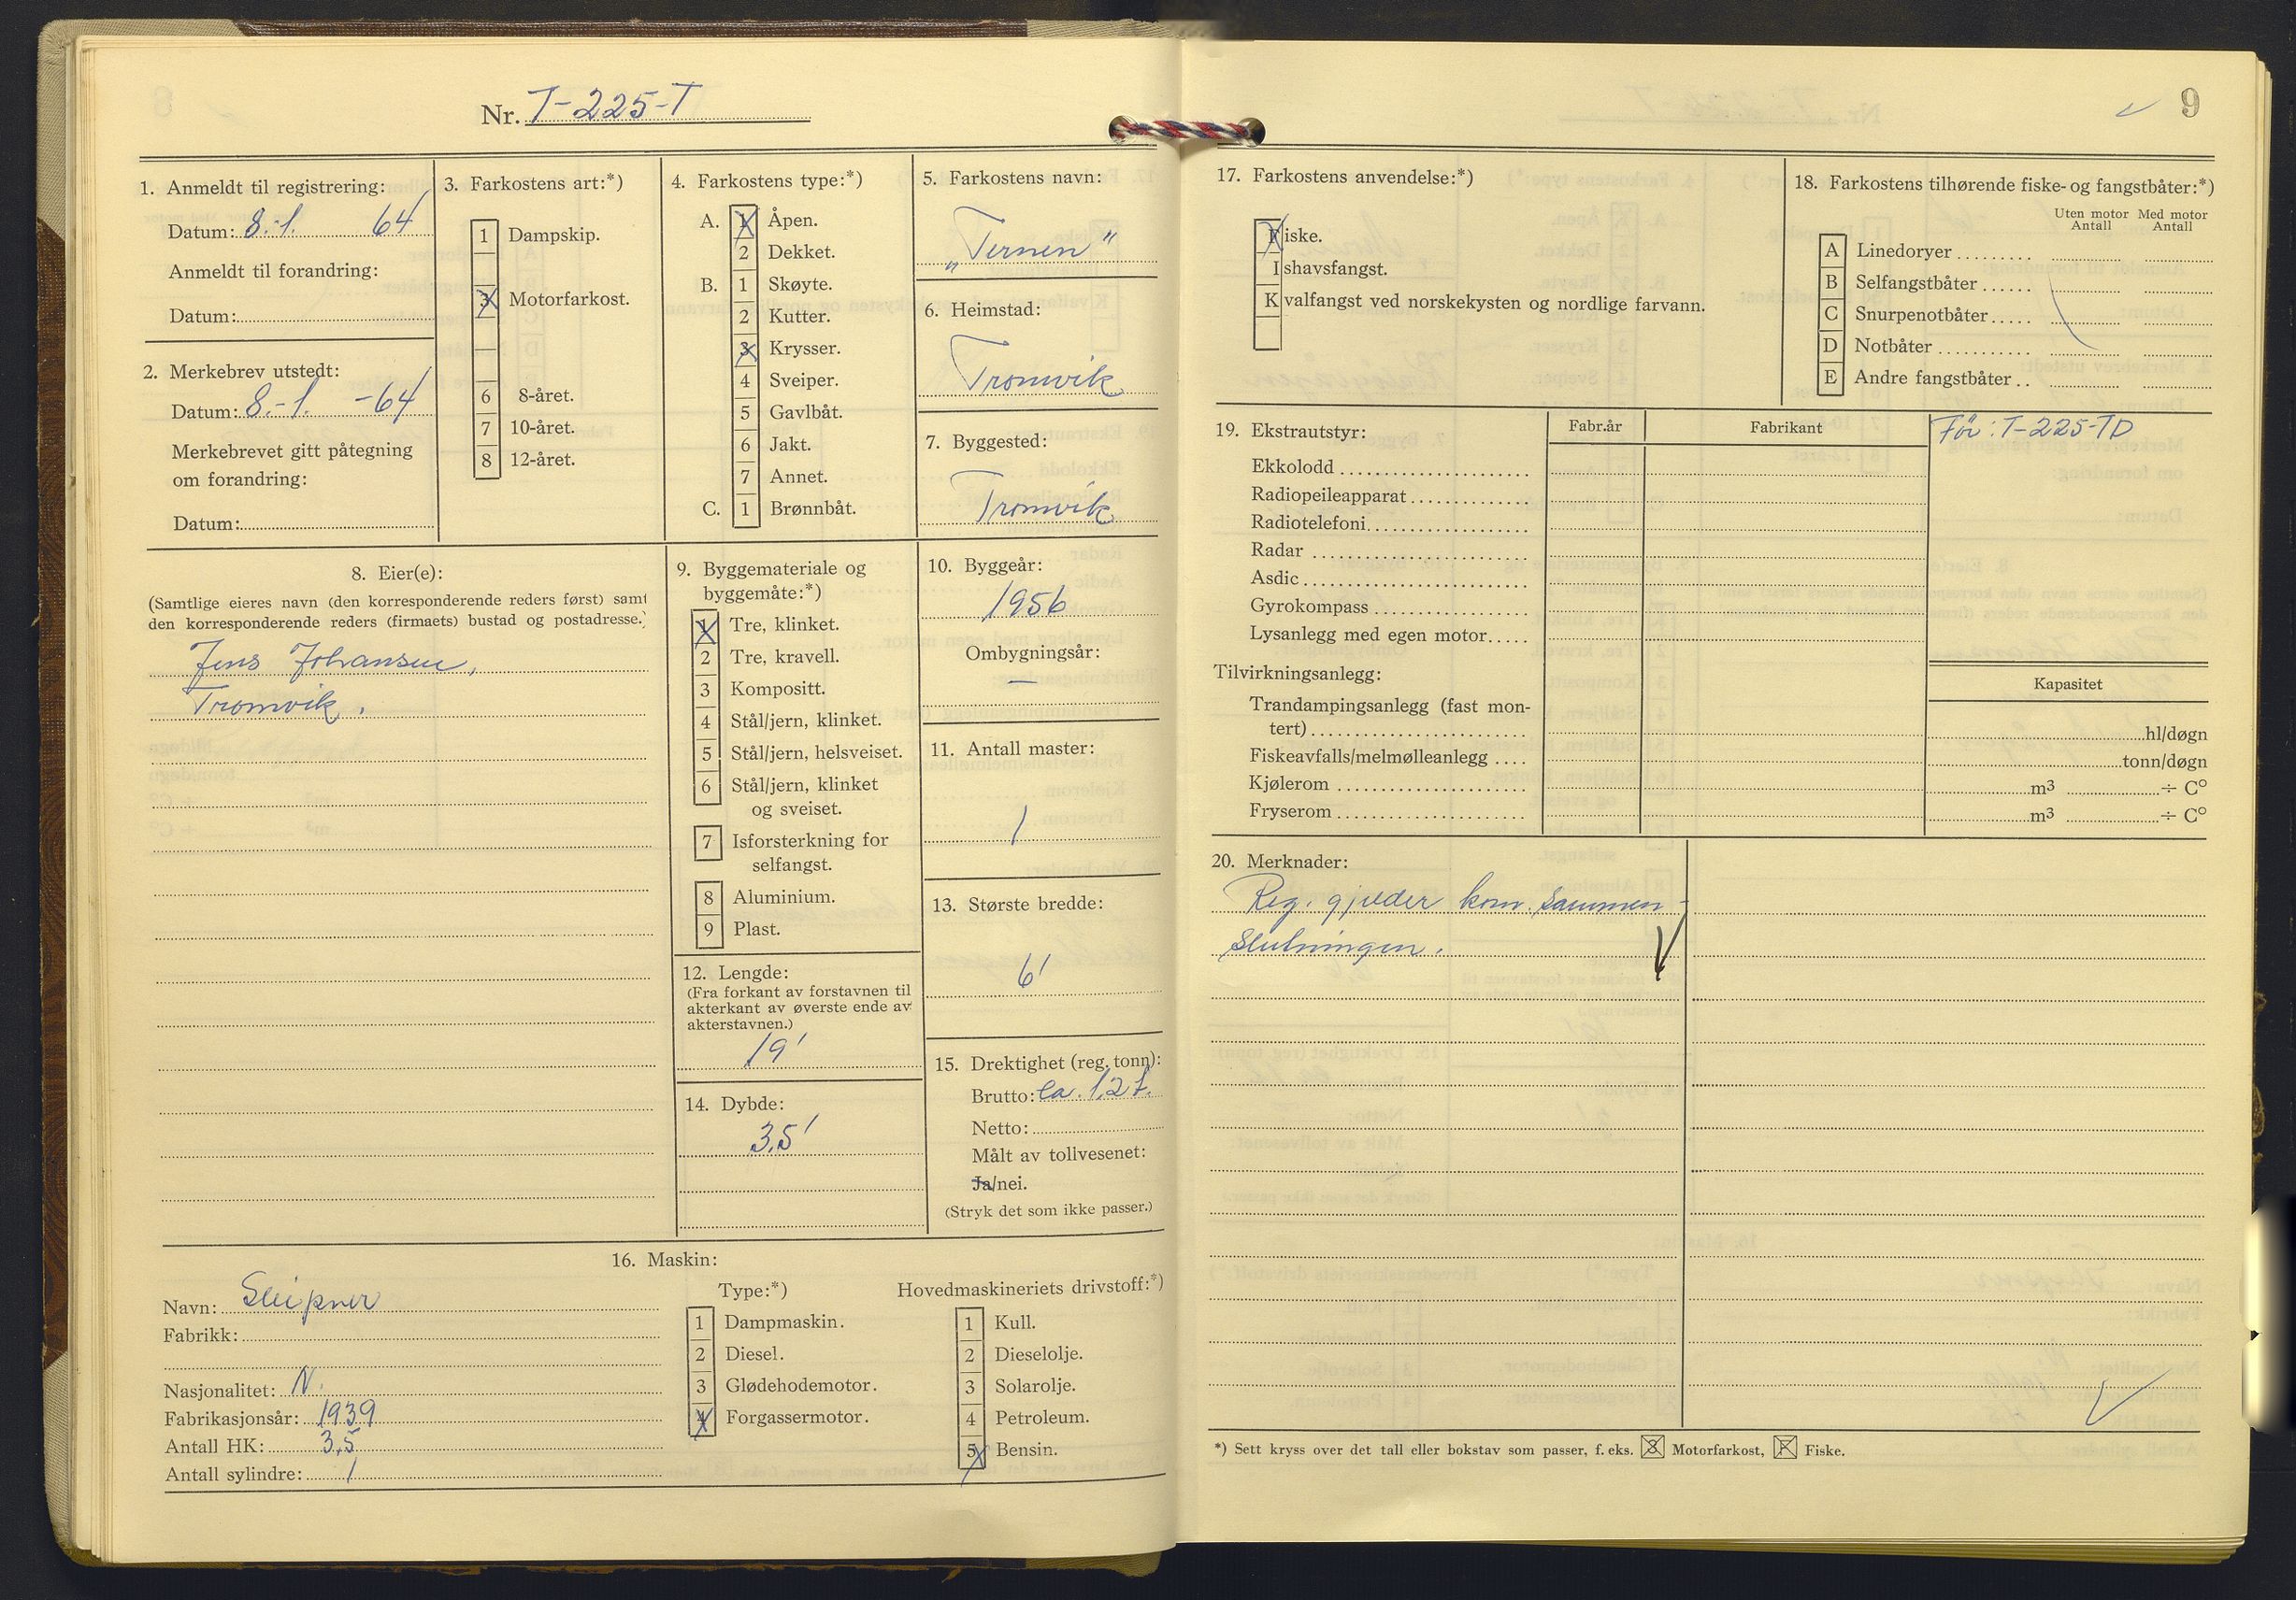 Nr. T-225-T
1. Anmeldt til registrering:
Datum: 8.-1. 64
Anmeldt til forandring:
Datum:
2. Merkebrev utstedt:
Datum: 8.-1. -64
Merkebrevet gitt påtegning
om forandring:
Datum:
3. Farkostens art:*)
1 Dampskip.
3 Motorfarkost.
6 8-året.
7 10-året.
8 12-året.
4. Farkostens type:*)
A. 1 Åpen.
2 Dekket.
B. 1 Skøyte.
2 Kutter.
3 Krysser.
4 Sveiper.
5 Gavlbåt.
6 Jakt.
7 Annet.
C. 1 Brønnbåt.
5. Farkostens navn:
„Ternen"
6. Heimstad:
Tromvik
7. Byggested:
Tromvik
8. Eier(e):
(Samtlige eieres navn (den korresponderende reders først) samt
den korresponderende reders (firmaets) bustad og postadresse.)
Jens Johansen,
Tromvik.
9. Byggemateriale og
byggemåte:*)
1 Tre, klinket.
2 Tre, kravell.
3 Kompositt.
4 Stål/jern, klinket.
5 Stål/jern, helsveiset.
6 Stål/jern, klinket
og sveiset.
7 Isforsterkning for
selfangst.
8 Aluminium.
9 Plast.
10. Byggeår:
1956
Ombygningsår:
—
11. Antall master:
1
12. Lengde:
(Fra forkant av forstavnen til
akterkant av øverste ende av
akterstavnen.)
19'
13. Største bredde:
6'
14. Dybde:
3,5'
15. Drektighet (reg. tonn):
Brutto: ca. 1,2 t.
Netto:
Målt av tollvesenet:
Ja/nei.
(Stryk det som ikke passer.)
16. Maskin:
Navn: Sleipner
Fabrikk:
Nasjonalitet: N.
Fabrikasjonsår: 1939
Antall HK: 3,5
Antall sylindre: 1
Type:*)
1 Dampmaskin.
2 Diesel.
3 Glødehodemotor.
4 Forgassermotor.
Hovedmaskineriets drivstoff:*)
1 Kull.
2 Dieselolje.
3 Solarolje.
4 Petroleum.
5 Bensin.
9
17. Farkostens anvendelse:*)
Fiske.
Ishavsfangst.
Kvalfangst ved norskekysten og nordlige farvann.
18. Farkostens tilhørende fiske- og fangstbåter:*)
Uten motor Med motor
Antall Antall
A Linedoryer
B Selfangstbåter
C Snurpenotbåter
D Notbåter
E Andre fangstbåter
19. Ekstrautstyr: Fabr.år Fabrikant
Før: T-225-TD
Ekkolodd
Radiopeileapparat
Radiotelefoni
Radar
Asdic
Gyrokompass
Lysanlegg med egen motor
Tilvirkningsanlegg:
Kapasitet
Trandampingsanlegg (fast mon-
tert) hl/døgn
Fiskeavfalls/melmølleanlegg tonn/døgn
Kjølerom m³ ÷ C°
Fryserom m³ ÷ C°
20. Merknader:
Reg. gjelder kom. sammen-
slutningen.
*) Sett kryss over det tall eller bokstav som passer, f. eks. 3 Motorfarkost, F Fiske.